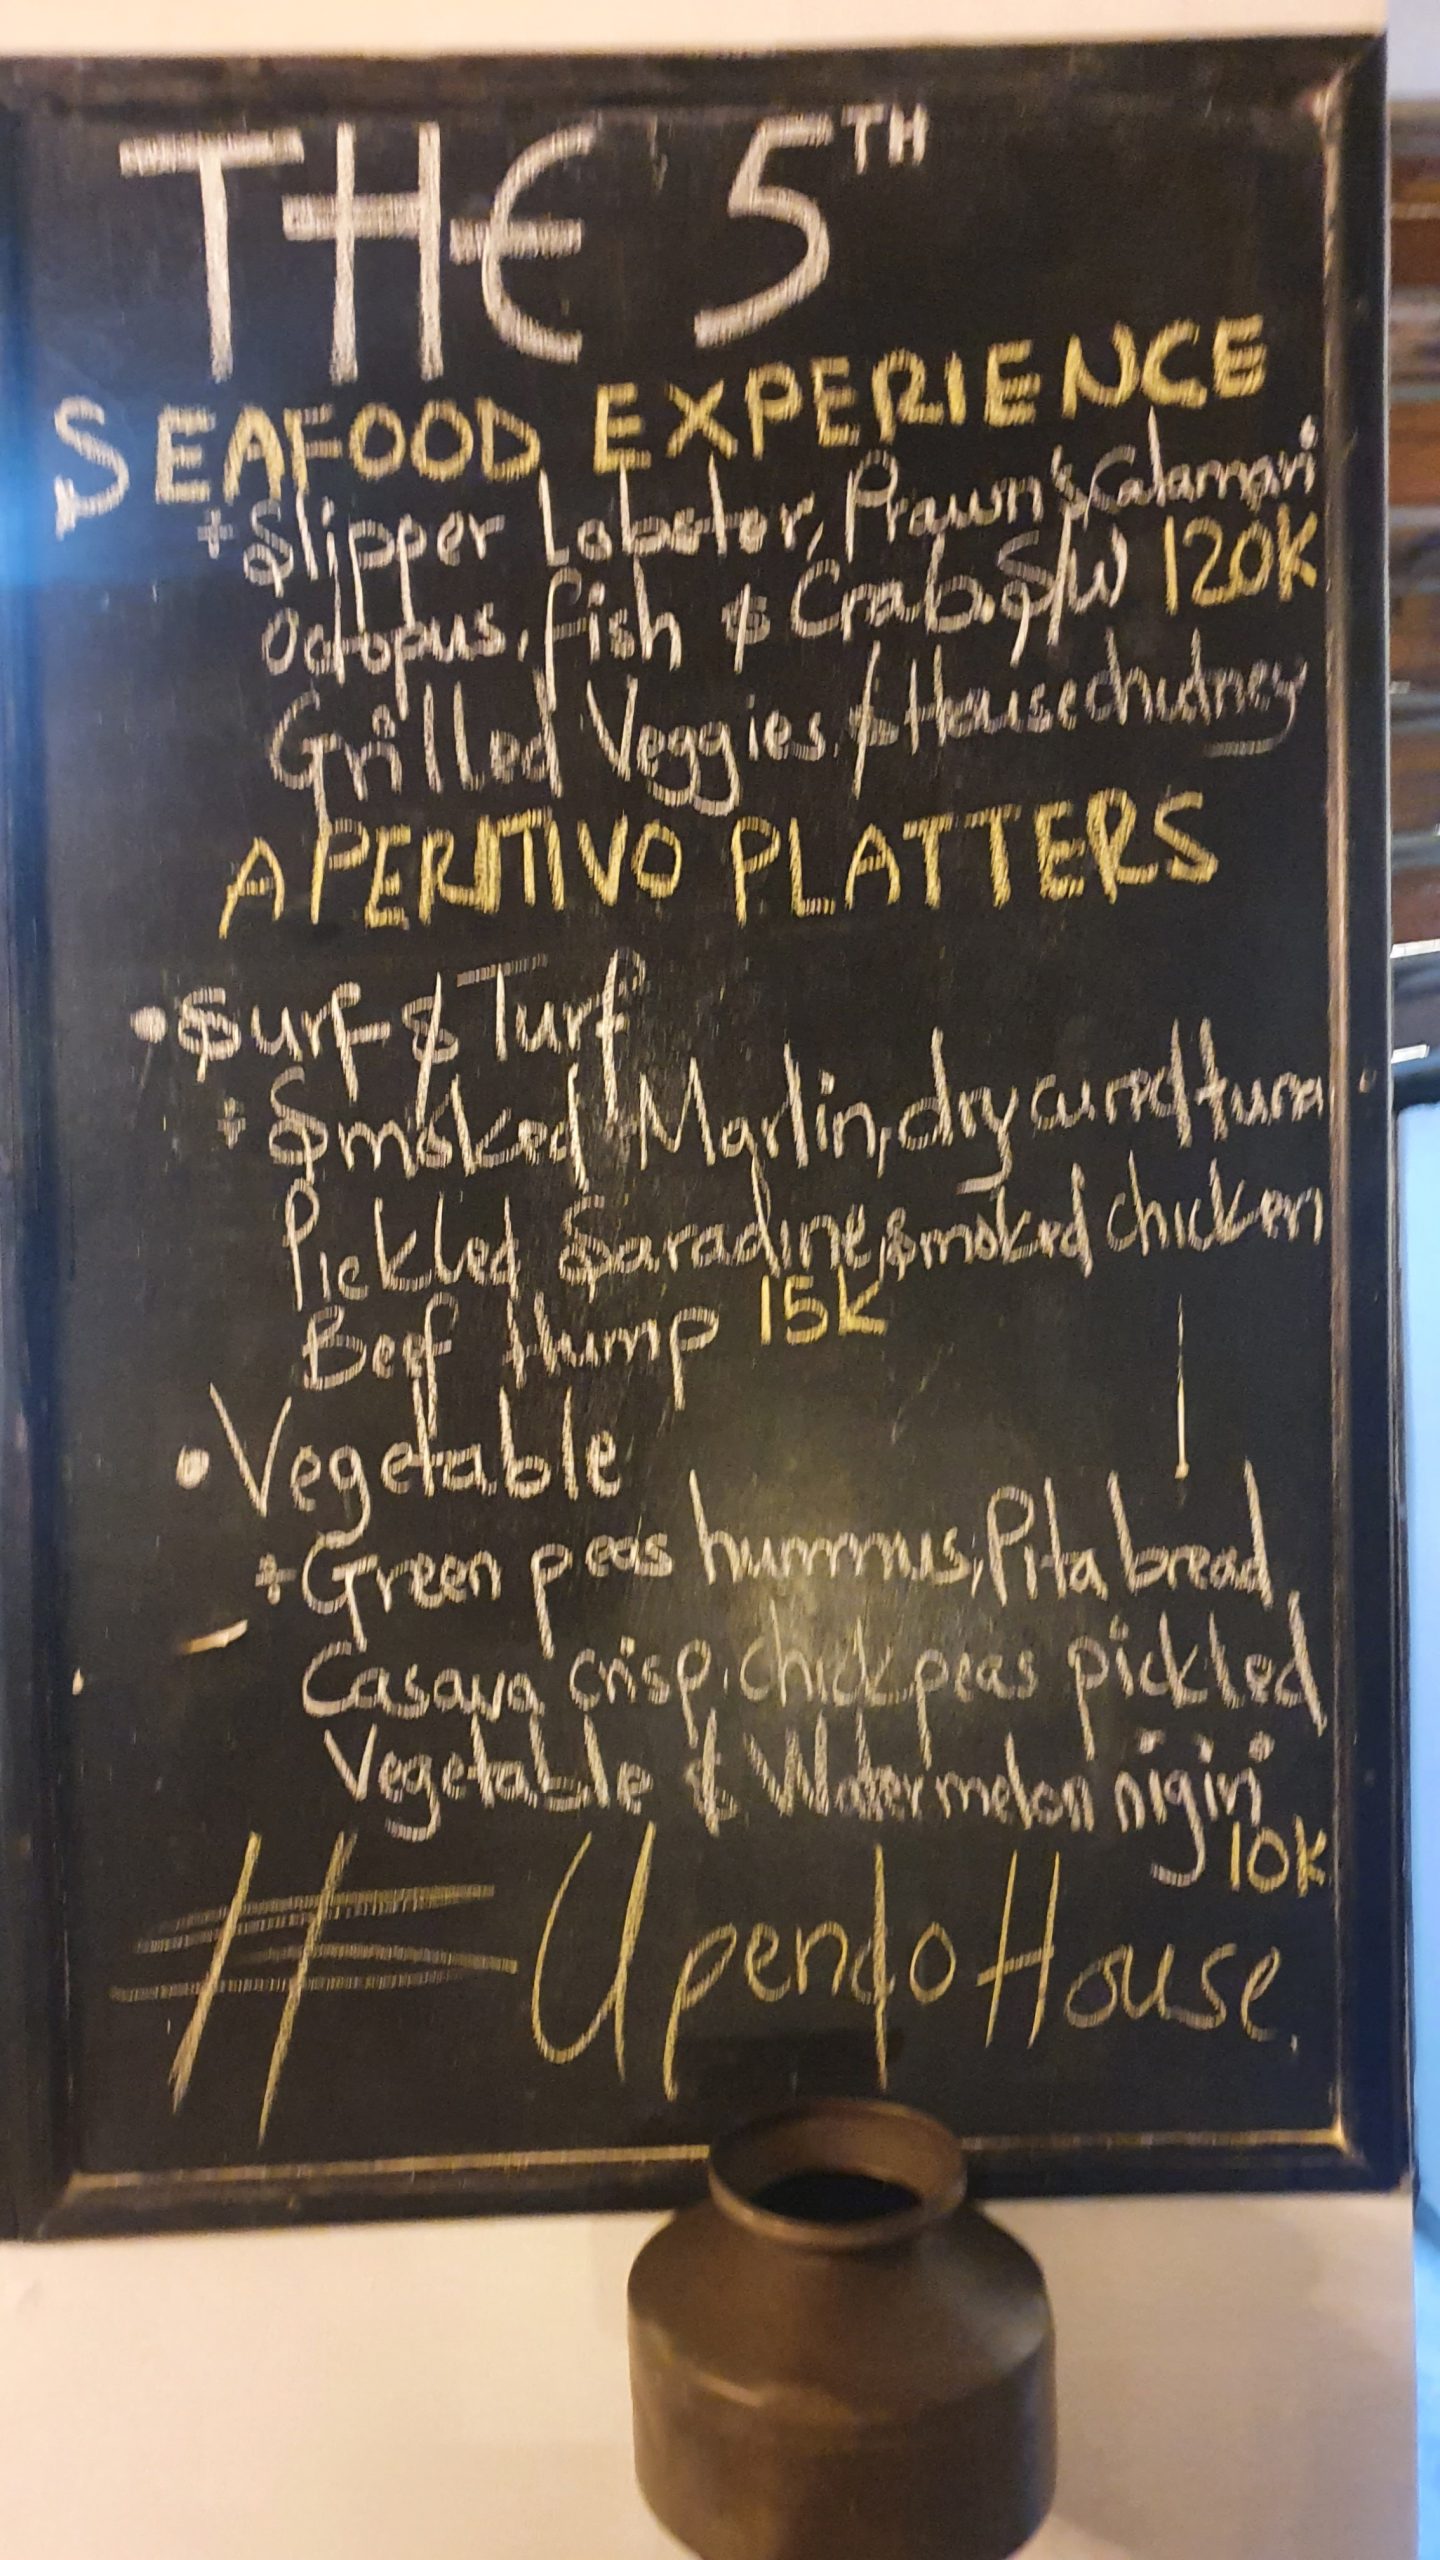 THE 5TH
SEAFOOD EXPERIENCE
+ Slipper Lobster, Prawn's, Calamari
Octopus, fish & Crab. S/W 120K
Grilled Veggies & House chutney
APERITIVO PLATTERS
• Surf & Turf
+ Smoked Marlin, dry cured tuna
Pickled Saradine, smoked chicken
Beef Hump 15K
• Vegetable
+ Green peas hummus, Pita bread
Casava crisp, chick peas pickled
Vegetable & Watermelon nigiri
10K
# Upendo House.